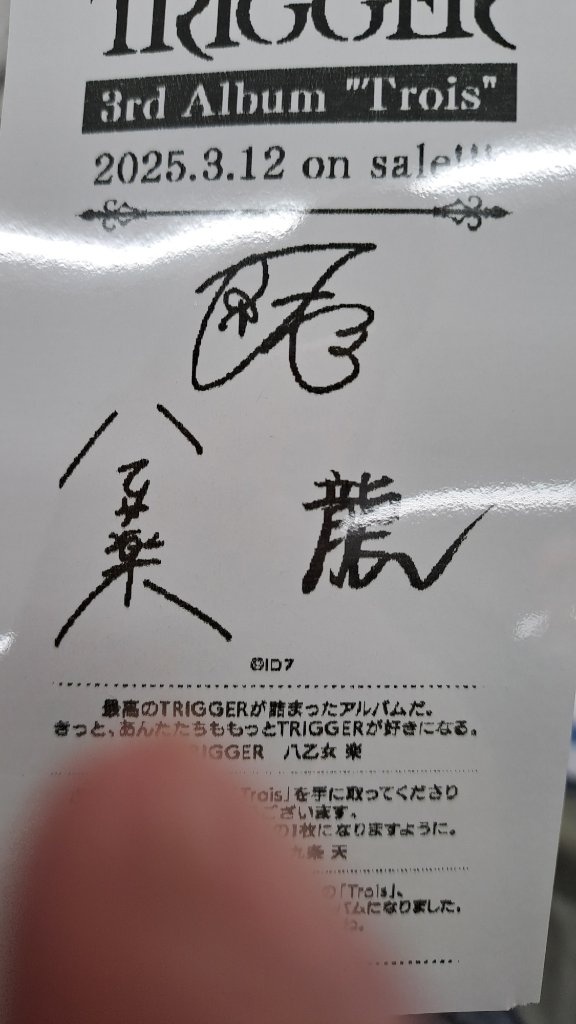 TRIGGER
3rd Album "Trois"
2025.3.12 on sale!!!
八乙女楽
龍
©ID7
最高のTRIGGERが詰まったアルバムだ。
きっと、あんたたちももっとTRIGGERが好きになる。
TRIGGER 八乙女 楽
Trois」を手に取ってくださり
ございます。
の1枚になりますように。
九条 天
の「Trois」、
バムになりました。
ね。